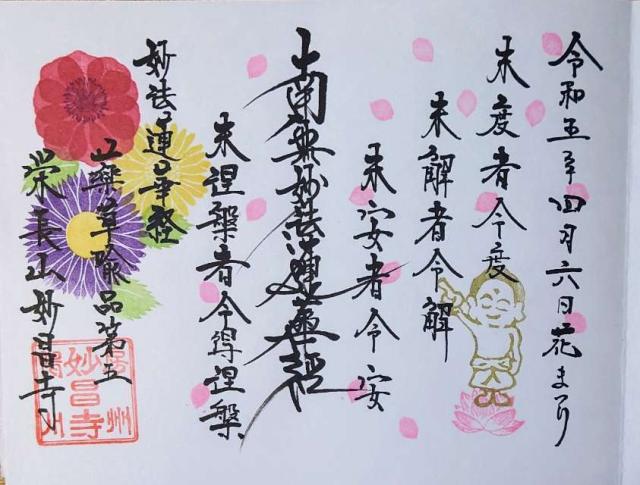 令和五年四月六日花まつり
未度者令度
未解者令解
未安者令安
南無妙法蓮華経
未涅槃者令得涅槃
妙法蓮華経
薬草喩品第五
栄長山妙昌寺
妙昌寺